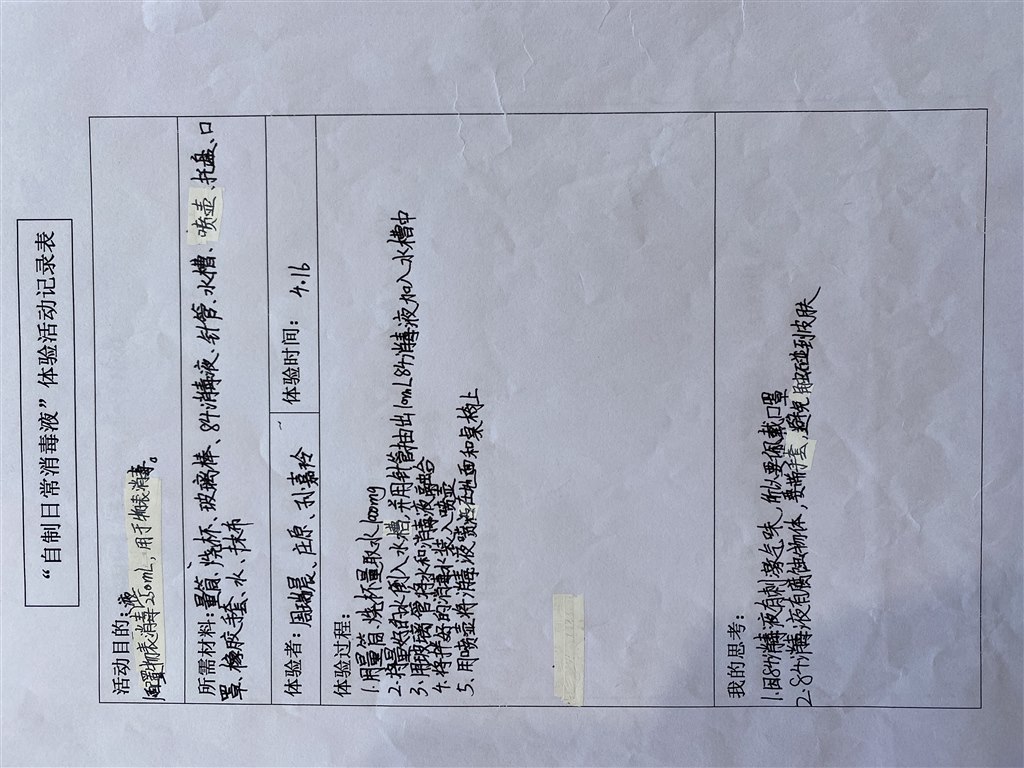 “自制日常消毒液”体验活动记录表
活动目的：液
配置物表消毒250mL，用于物表消毒。
所需材料：量筒、烧杯、玻璃棒、84消毒液、针管、水槽、喷壶、托盘、口
罩、橡胶手套、水、抹布
体验者：周瑞晨、庄原、孙嘉玲
体验时间：4.16
体验过程：
1.用量筒，烧杯量取水1000mg
2.将量好的水倒入水槽，并用针管抽出10mL84消毒液加入水槽中
3.用玻璃管将水和消毒液融合
4.将伴好的消毒水装入喷壶
5.用喷壶将消毒液喷洒在地面和桌椅上
我的思考：
1.因84消毒液有刺激气味，所以要佩戴口罩
2.84消毒液有腐蚀物体，要带手套，避免触碰到皮肤